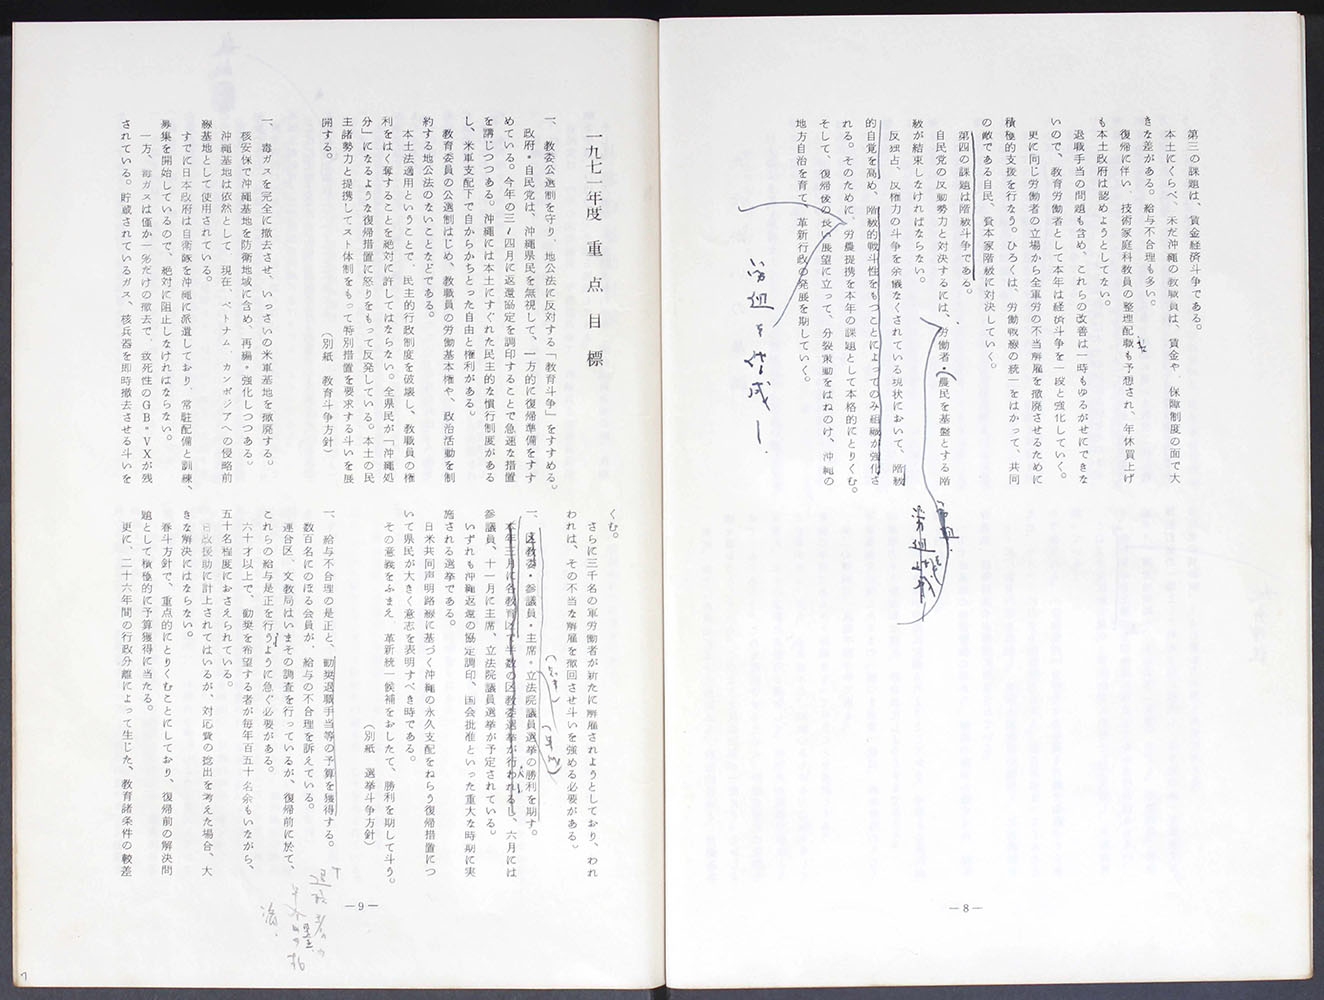 第三の課題は、賃金経済斗争である。
本土にくらべ、未だ沖縄の教職員は、賃金や、保障制度の面で大
きな差がある。給与不合理も多い。
復帰に伴い、技術家庭科教員の整理配職も予想され、年休買上げ
も本土政府は認めようとしてない。
退職手当の問題も含め、これらの改善は一時もゆるがせにできな
いので、教育労働者として本年は経済斗争を一段と強化していく。
更に同じ労働者の立場から全軍労の不当解雇を撤廃させるために
積極的支援を行なう。ひろくは、労働戦線の統一をはかって、共同
の敵である自民、資本家階級に対決していく。
第四の課題は階級斗争である。
自民党の反動勢力と対決するには、労働者・農民を基盤とする階
級が結束しなければならない。
反独占、反権力の斗争を余儀なくされている現状において、階級
的自覚を高め、階級的戦斗性をもつことによってのみ組織が強化さ
れる。そのために、労農提携を本年の課題として本格的にとりくむ。
そして、復帰後の長い展望に立って、分裂策動をはねのけ、沖縄の
地方自治を育て、革新行政の発展を期していく。
労組を作成
労組
—8—
一九七一年度 重点目標
一、教委公選制を守り、地公法に反対する「教育斗争」をすすめる。
政府・自民党は、沖縄県民を無視して、一方的に復帰準備をすす
めている。今年の三〜四月に返還協定を調印することで急速な措置
を講じつつある。沖縄には本土にすぐれた民主的な慣行制度がある
し、米軍支配下で自からかちとった自由と権利がある。
教育委員の公選制はじめ、教職員の労働基本権や、政治活動を制
約する地公法のないことなどである。
本土法適用ということで、民主的行政制度を破壊し、教職員の権
利をはく奪することを絶対に許してはならない。全県民が「沖縄処
分」になるような復帰措置に怒りをもって反発している。本土の民
主諸勢力と提携してスト体制をもって特別措置を要求する斗いを展
開する。
(別紙 教育斗争方針)
一、毒ガスを完全に撤去させ、いっさいの米軍基地を撤廃する。
核安保で沖縄基地を防衛地域に含め、再編・強化しつつある。
沖縄基地は依然として、現在、ベトナム、カンボジアへの侵略前
線基地として使用されている。
すでに日本政府は自衛隊を沖縄に派遣しており、常駐配備と訓練、
募集を開始しているので、絶対に阻止しなければならない。
一方、毒ガスは僅か一%だけの撤去で、致死性のGB・VXが残
されている。貯蔵されているガス、核兵器を即時撤去させる斗いを
くむ。
さらに三千名の軍労働者が新たに解雇されようとしており、われ
われは、その不当な解雇を撤回させ斗いを強める必要がある。
一、区教委・参議員・主席・立法院議員選挙の勝利を期す。
本年三月に各教育区で半数の区教委選挙が行われるし、六月には
参議員、十一月に主席、立法院議員選挙が予定されている。
いずれも沖縄返還の協定調印、国会批准といった重大な時期に実
施される選挙である。
日米共同声明路線に基づく沖縄の永久支配をねらう復帰措置につ
いて県民が大きく意志を表明すべき時である。
その意義をふまえ、革新統一候補をおしたて、勝利を期して斗う。
(別紙 選挙斗争方針)
一、給与不合理の是正と、勧奨退職手当等の予算を獲得する。
数百名にのぼる会員が、給与の不合理を訴えている。
連合区、文教局はいまその調査を行っているが、復帰前に於て、
これらの給与是正を行うように急ぐ必要がある。
六十才以上で、勧奨を希望する者が毎年百五十名余もいながら、
五十名程度におさえられている。
日政援助に計上されてはいるが、対応費の捻出を考えた場合、大
きな解決にはならない。
春斗方針で、重点的にとりくむことにしており、復帰前の解決問
題として積極的に予算獲得に当たる。
更に、二十六年間の行政分離によって生じた、教育諸条件の較差
—9—